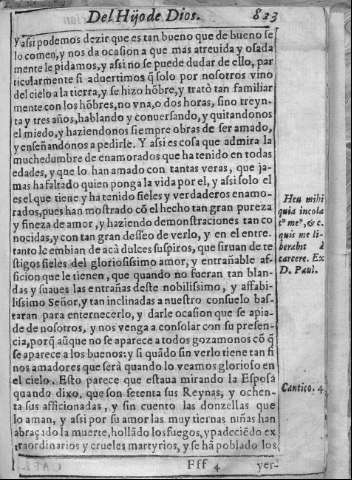 Del Hijo de Dios. 823
Y assi podemos dezir que es tan bueno que de bueno se
lo comen, y nos da ocasion a que mas atreuida y osada
mente le pidamos, y assi no se puede dudar de ello, par
ticularmente si aduertimos q̃ solo por nosotros vino
del cielo a la tierra, y se hizo hõbre, y tratò tan familiar
mente con los hõbres, no vna, o dos horas, sino treyn-
ta y tres años, hablando y conuersando, y quitandonos
el miedo, y haziendonos siempre obras de ser amado,
y enseñandonos a pedirle. Y assi es cosa que admira la
muchedumbre de enamorados que ha tenido en todas
edades, y que lo han amado con tantas veras, que ja-
mas ha faltado quien ponga la vida por el, y assi solo el
es el que tiene y ha tenido fieles y verdaderos enamo-
rados, pues han mostrado cõ el hecho tan gran pureza
y fineza de amor, y haziendo demonstraciones tan co
nocidas, y con tan gran desseo de verlo, y en el entre
tanto le embian de acà dulces suspiros, que siruan de te
stigos fieles del gloriosissimo amor, y entrañable af-
ficion que le tienen, que quando no fueran tan blan-
das y suaues las entrañas deste nobilissimo, y affabi-
lissimo Señor, y tan inclinadas a nuestro consuelo bas-
taran para enternecerlo, y darle ocasion que se apia-
de de nosotros, y nos venga a consolar con su presen-
cia, porq̃ aũque no se aparece a todos gozamonos cõ q̃
se aparece a los buenos: y si quãdo sin verlo tiene tan fi
nos amadores que serà quando lo veamos glorioso en
el cielo. Esto parece que estaua mirando la Esposa
quando dixo, que son setenta sus Reynas, y ochen-
ta sus afficionadas, y sin cuento las donzellas que
lo aman, y assi por su amor las muy tiernas niñas han
abraçado la muerte, hollãdo los fuegos, y padeciẽdo ex
traordinarios y crueles martyrios, y se hã poblado los
Fff 4 yer-
Heu mihi
quia incola
tus meus, &c.
quis me li-
berabit à
carcere. Ex
D. Paul.
Cantico. 4.